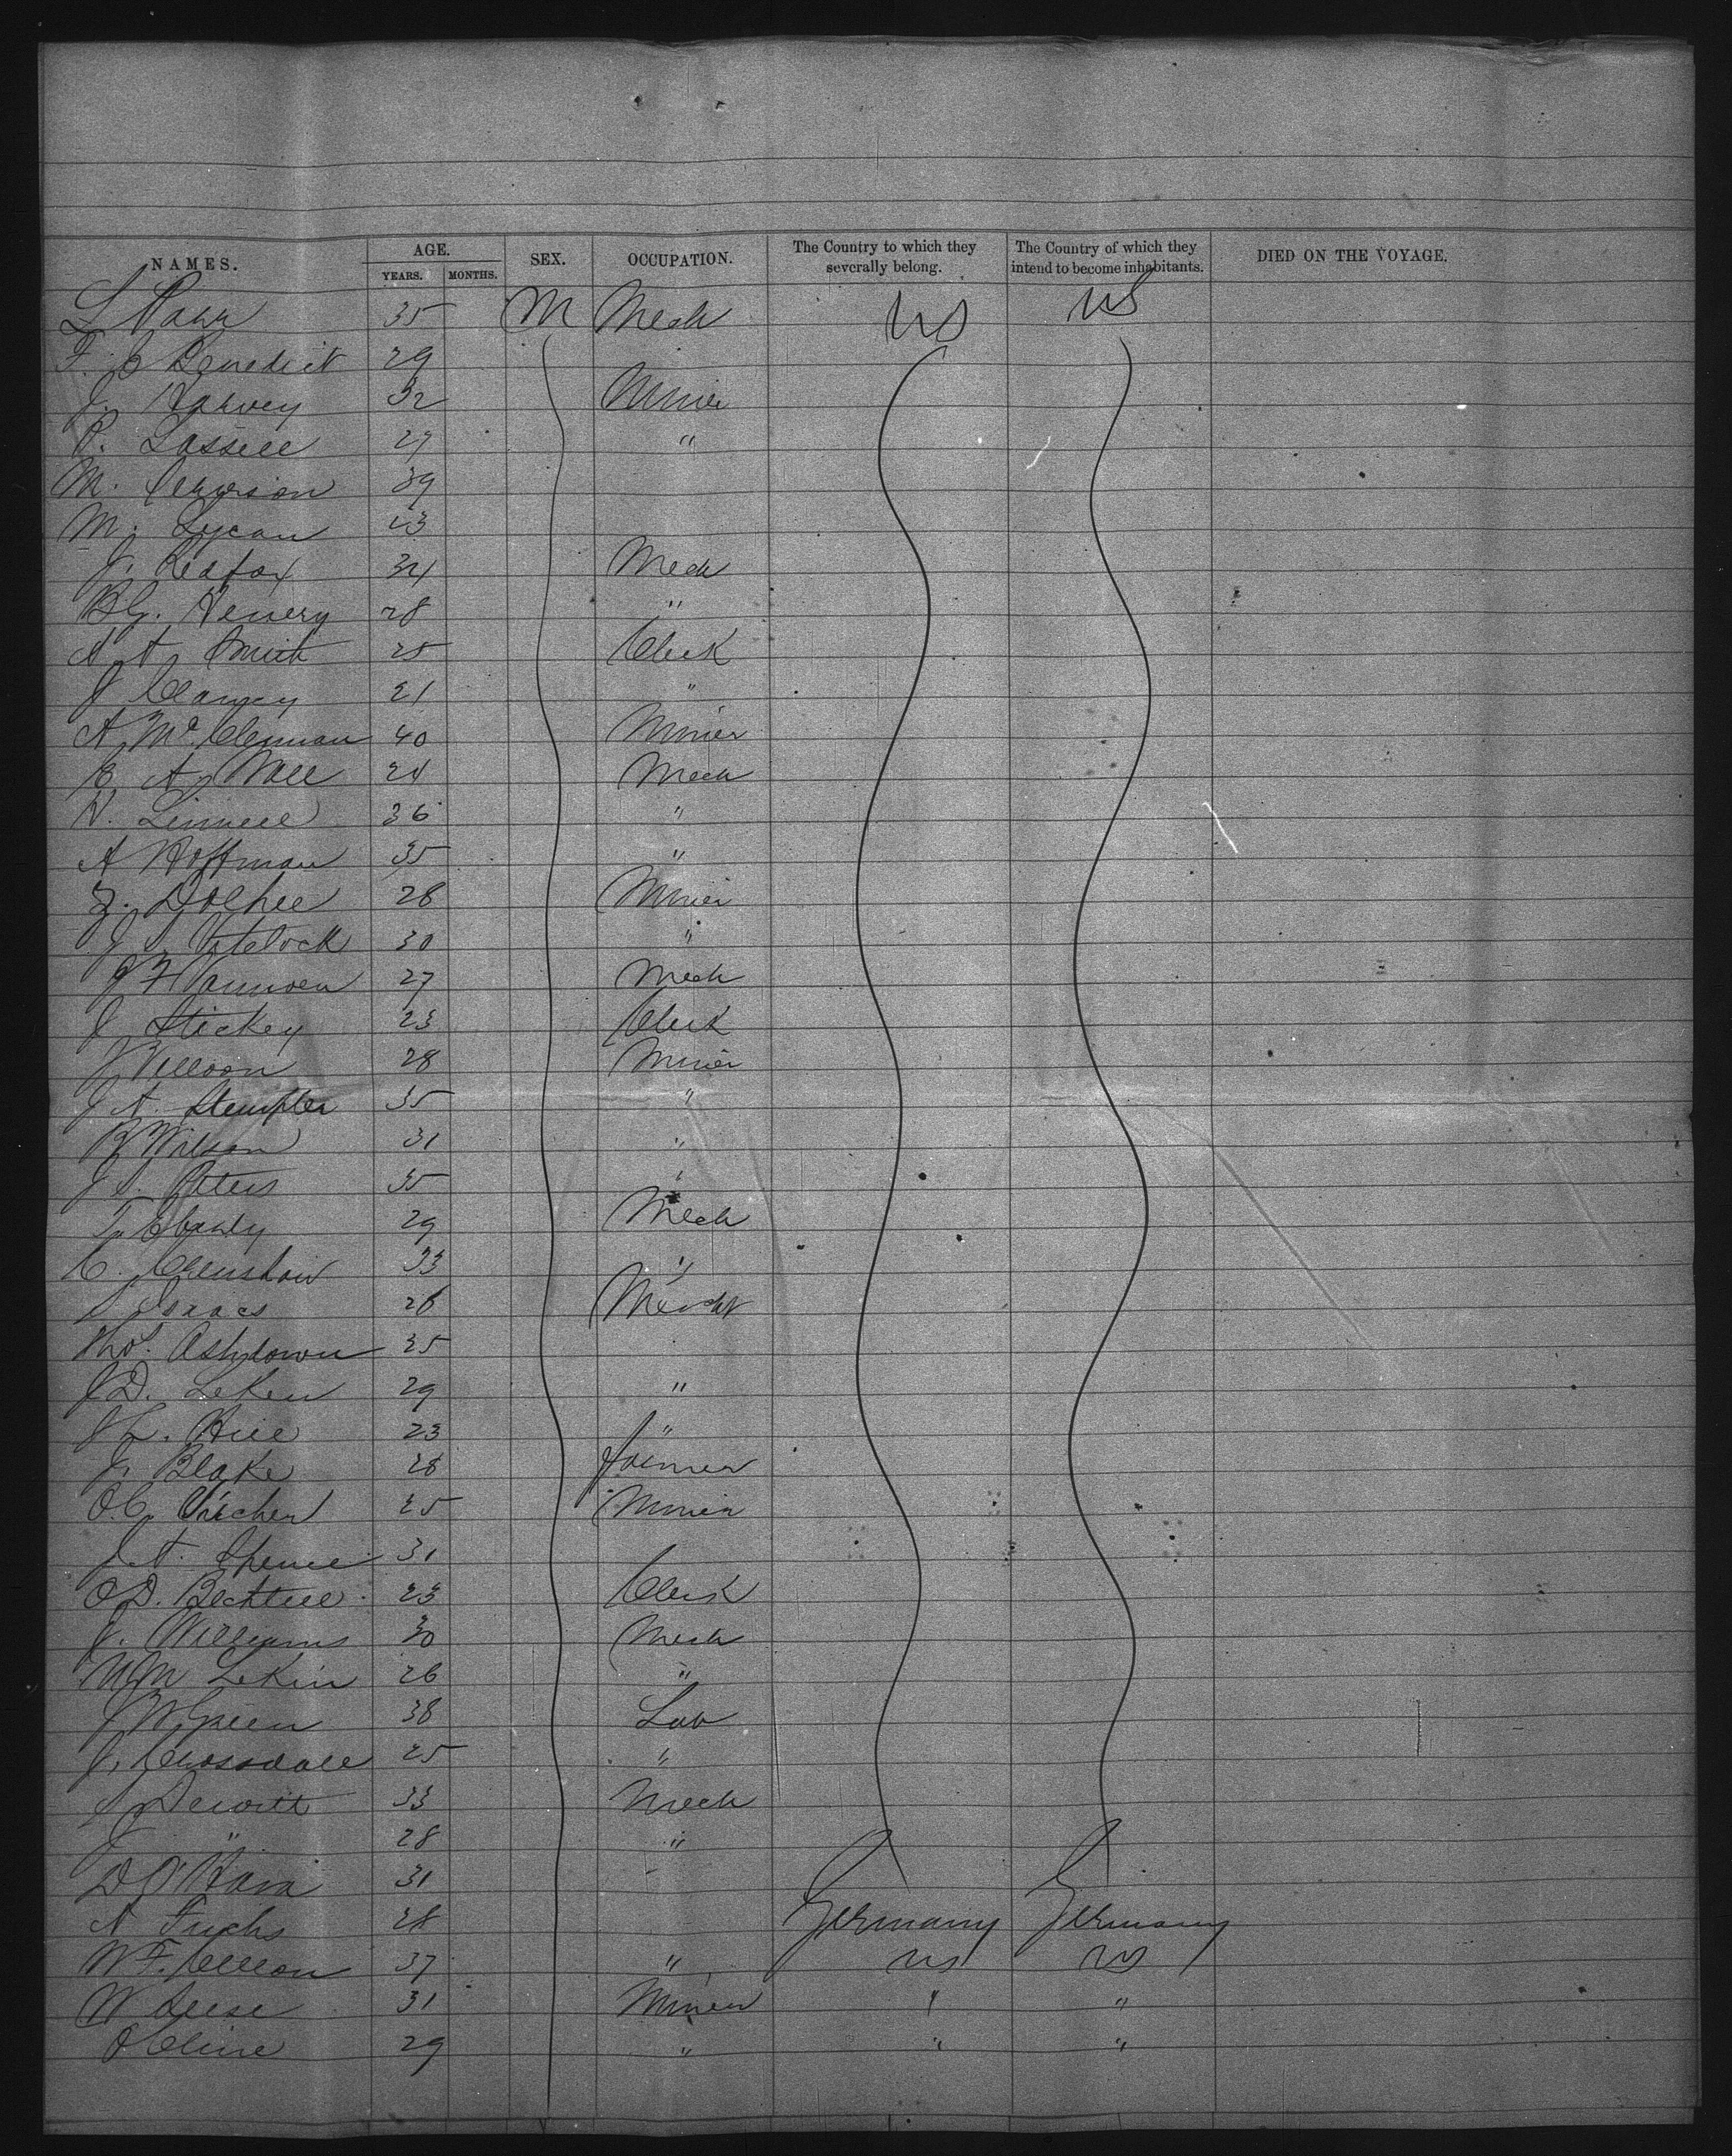 NAMES. AGE. SEX. OCCUPATION. The Country to which they severally belong. The Country of which they intend to become inhabitants. DIED ON THE VOYAGE.
YEARS. MONTHS.
L 35 M Mech US US
F. C Benedict 29
J. Harvey 32 Miner
P. Lassell 27 "
M. 39
M. Lycan 23
J. Redfox 34 Mech
B.G. Henery 28 "
A. A. Smith 25 Clerk
J Clancy 21 "
A. Mc Clennan 40 Miner
E. A. Wall 24 Mech
H. Linnell 36 "
A Hoffman 35 "
Z. 28 Miner
J. 30 "
J F 27 Mech
J Stickey 23 Clerk
J 28 Miner
J A. Stempler 35 "
R Wilson 31 "
J S. Peters 35 "
T. 29 Mech
C. Crenshaw 33 "
Isaacs 26 Mercht
Thos. Ashdown 35
J D. Leken 29 "
J L. Hill 23 "
J. Blake 28 Farmer
O.C. 25 Miner
J. A. Spence 31
O D. Bechtell 23 Clerk
J. Williams 30 Mech
Wm Lekin 26 "
J W Green 38 Lab
J. Crossdale 25 "
J Dewitt 33 Mech
J " 28 "
D O'Hara 31
A Fuchs 28 Germany Germany
W F. 37 " US US
W Leese 31 Miner " "
O Cline 29 " " "